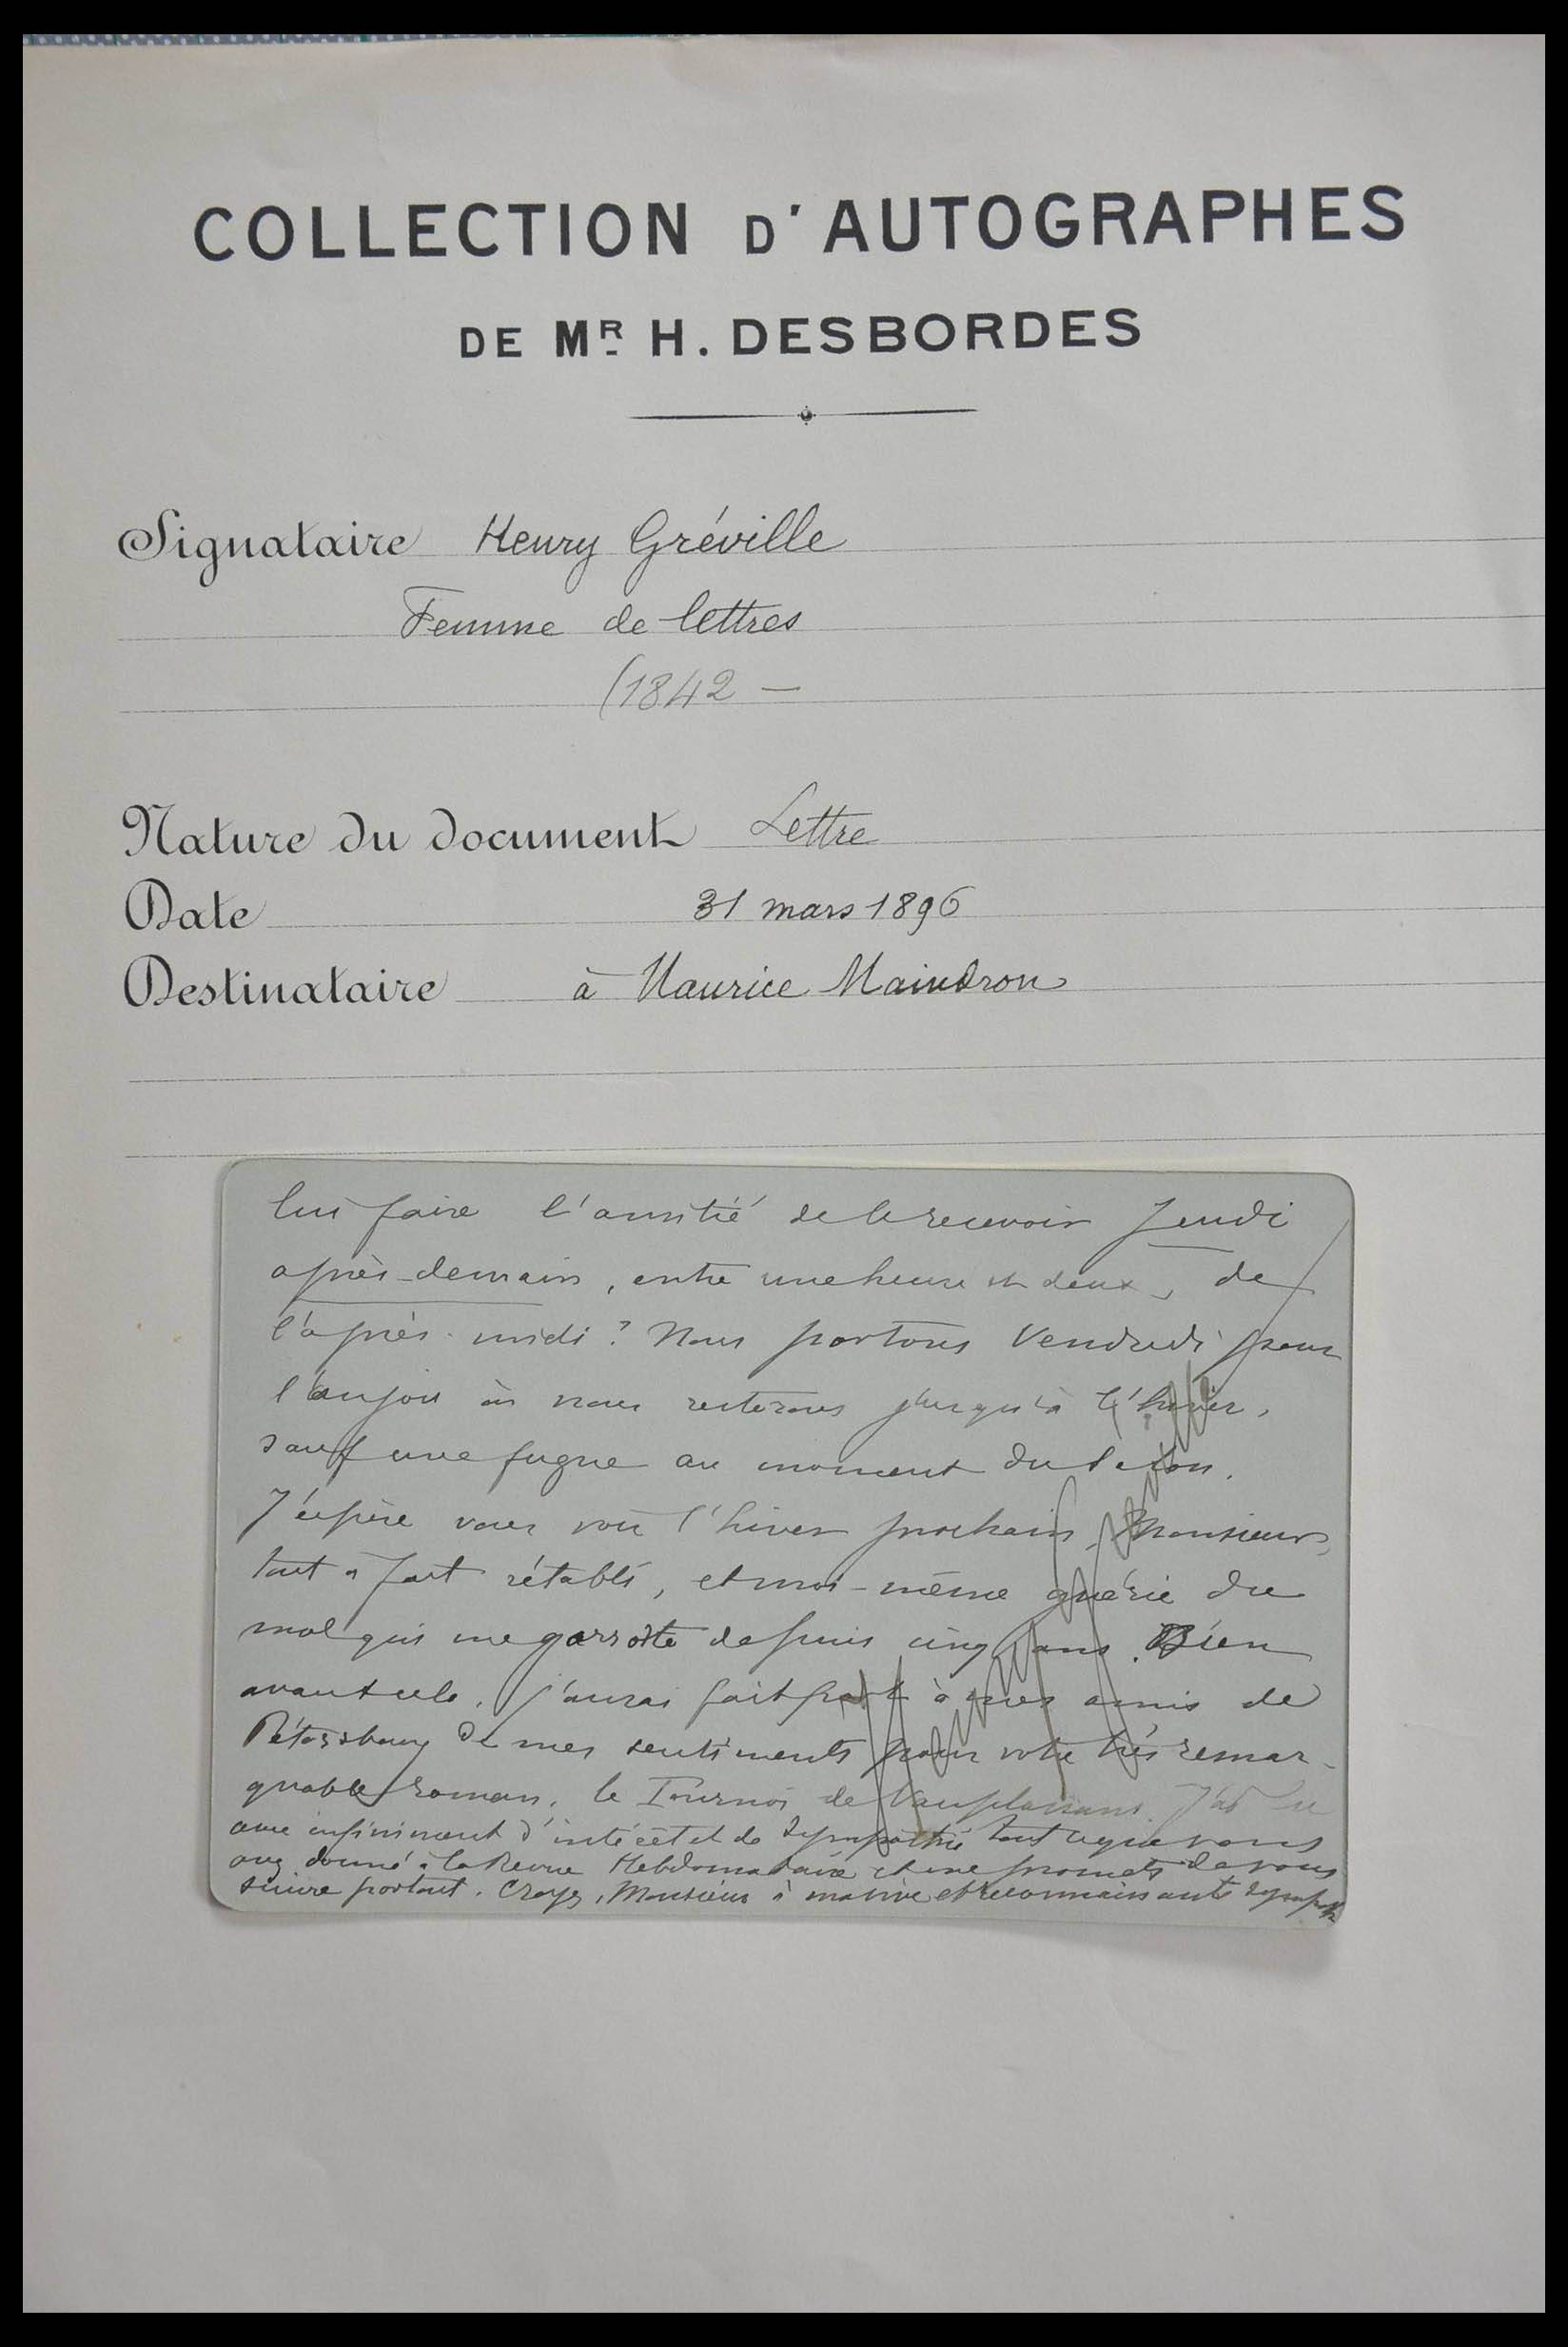 COLLECTION D'AUTOGRAPHES
DE MR H. DESBORDES
Signataire Henry Gréville
Femme de lettres
(1842 —
Nature du document Lettre
Date 31 mars 1896
Destinataire à Maurice Maindron
lui faire l'amitié de le recevoir Jeudi
après-demain, entre une heure et deux, de
l'après-midi? Nous partons Vendredi pour
l'anjou où nous resterons jusqu'à l'hiver,
sauf une fugue au moment du Salon.
J'espère vous voir l'hiver prochain, Monsieur,
tout à fait rétabli, et moi-même guérie du
mal qui me garrotte depuis cinq ans. Bien
avant cela, j'aurai fait part à mes amis de
Pétersbourg de mes sentiments pour votre très remar-
quable roman, le Tournoi de Vauplassans. J'ai lu
avec infiniment d'intérêt et de sympathie tout ce que vous
avez donné à la Revue Hebdomadaire et me promets de vous
suivre partout. Croyez, Monsieur à ma vive et reconnaissante sympathie
Henry Gréville